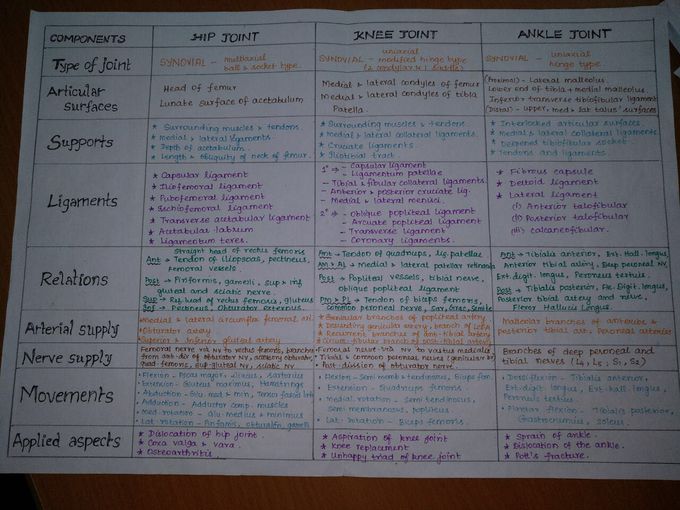 COMPONENTS
HIP JOINT
KNEE JOINT
ANKLE JOINT
Type of joint
SYNOVIAL - multiaxial
ball & socket type.
uniaxial
SYNOVIAL - modified hinge type
(2 condylar & 1 saddle)
uniaxial
SYNOVIAL - hinge type
Articular
surfaces
Head of femur
Lunate surface of acetabulum
Medial & lateral condyles of femur
Medial & lateral condyles of tibia
Patella
(Proximal) - lateral malleolus.
Lower end of tibia + medial malleolus.
Inferior transverse tibiofibular ligament
(Distal) - upper, med & lat talus' surfaces
Supports
* Surrounding muscles & tendons.
* medial & lateral ligaments.
* Depth of acetabulum.
* Length & obliquity of neck of femur.
* Surrounding muscles & tendons
* Medial & lateral collateral ligaments.
* Cruciate ligaments.
* Iliotibial tract.
* Interlocked articular surfaces.
* Medial & lateral collateral ligaments.
* Deepened tibiofibular socket
* Tendons and ligaments.
Ligaments
* Capsular ligament
* Iliofemoral ligament
* Pubofemoral ligament
* Ischiofemoral ligament
* Transverse acetabular ligament
* Acetabular labrum
* Ligamentum teres.
1° → - Capsular ligament
- Ligamentum patellae
- Tibial & fibular collateral ligaments.
- Anterior & posterior cruciate lig.
- Medial & lateral menisci.
2° → - Oblique popliteal ligament
- Arcuate popliteal ligament
- Transverse ligament
- Coronary ligaments.
* Fibrous capsule
* Deltoid ligament
* Lateral ligament
(i) Anterior talofibular
(ii) Posterior talofibular
(iii) calcaneofibular.
Relations
Straight head of rectus femoris
Ant → Tendon of iliopsoas, pectineus,
Femoral vessels.
Post → Piriformis, gemelli, sup & inf
gluteal and sciatic nerve.
Sup → Ref. head of rectus femoris, gluteus
Inf → Pectineus, Obturator externus.
Ant → Tendon of quadriceps, lig. patellae
AM & AL → Medial & lateral patellar retinacula
Post → Popliteal vessels, tibial nerve
oblique popliteal ligament
PM & PL → Tendon of biceps femoris,
Common peroneal nerve, Sar, Grac, Semite
Ant → Tibialis anterior, Ext. Hall. longus,
Anterior tibial artery, Deep peroneal NV,
Ext. digit. longus, Peroneus tertius.
Post → Tibialis posterior, Flx. Digit. longus,
Posterior tibial artery and nerve,
Flexor Hallucis Longus.
Arterial supply
* Medial & lateral circumflex femoral art.
* Obturator artery
* Superior & inferior gluteal artery
* Genicular branches of popliteal artery
* Descending genicular artery, branch of LCFA
* Recurrent branches of ant. tibial artery
* Circum. fibular branch of post. tibial artery
Malleolar branches of anterior &
posterior tibial art, Peroneal arteries
Nerve supply
Femoral nerve via NV to rectus femoris, branches
from ant. div of obturator NV, accessory obturator,
quad femoris, sup. gluteal NV, sciatic NV
Femoral nerve via NV to vastus medialis
Tibial & common peroneal nerve (genicular br)
Post. division of obturator nerve.
Branches of deep peroneal and
tibial nerves (L4, L5, S1, S2)
Movements
• Flexion - Psoas major, iliacus, sartorius
• Extension - Gluteus maximus, Hamstrings
• Abduction - Glu. med & min, Tensor fascia lata
• Adduction - Adductor comp. muscles
• Med. rotation - Glu. medius & minimus
• Lat. rotation - Piriformis, obturators, gemelli
• Flexion - Semimemb & tendinosus, Biceps fem.
• Extension - Quadriceps femoris
• Medial rotation - Semitendinosus,
Semimembranosus, popliteus
• Lat. rotation - Biceps femoris.
• Dorsiflexion - Tibialis anterior,
Ext. digit longus, Ext. hall. longus,
Peroneus tertius
• Plantar flexion - Tibialis posterior,
Gastrocnemius, soleus.
Applied aspects
* Dislocation of hip joint.
* Coxa valga & vara.
* Osteoarthritis.
* Aspiration of knee joint
* Knee replacement
* Unhappy triad of knee joint
* Sprain of ankle.
* Dislocation of the ankle.
* Pott's fracture.